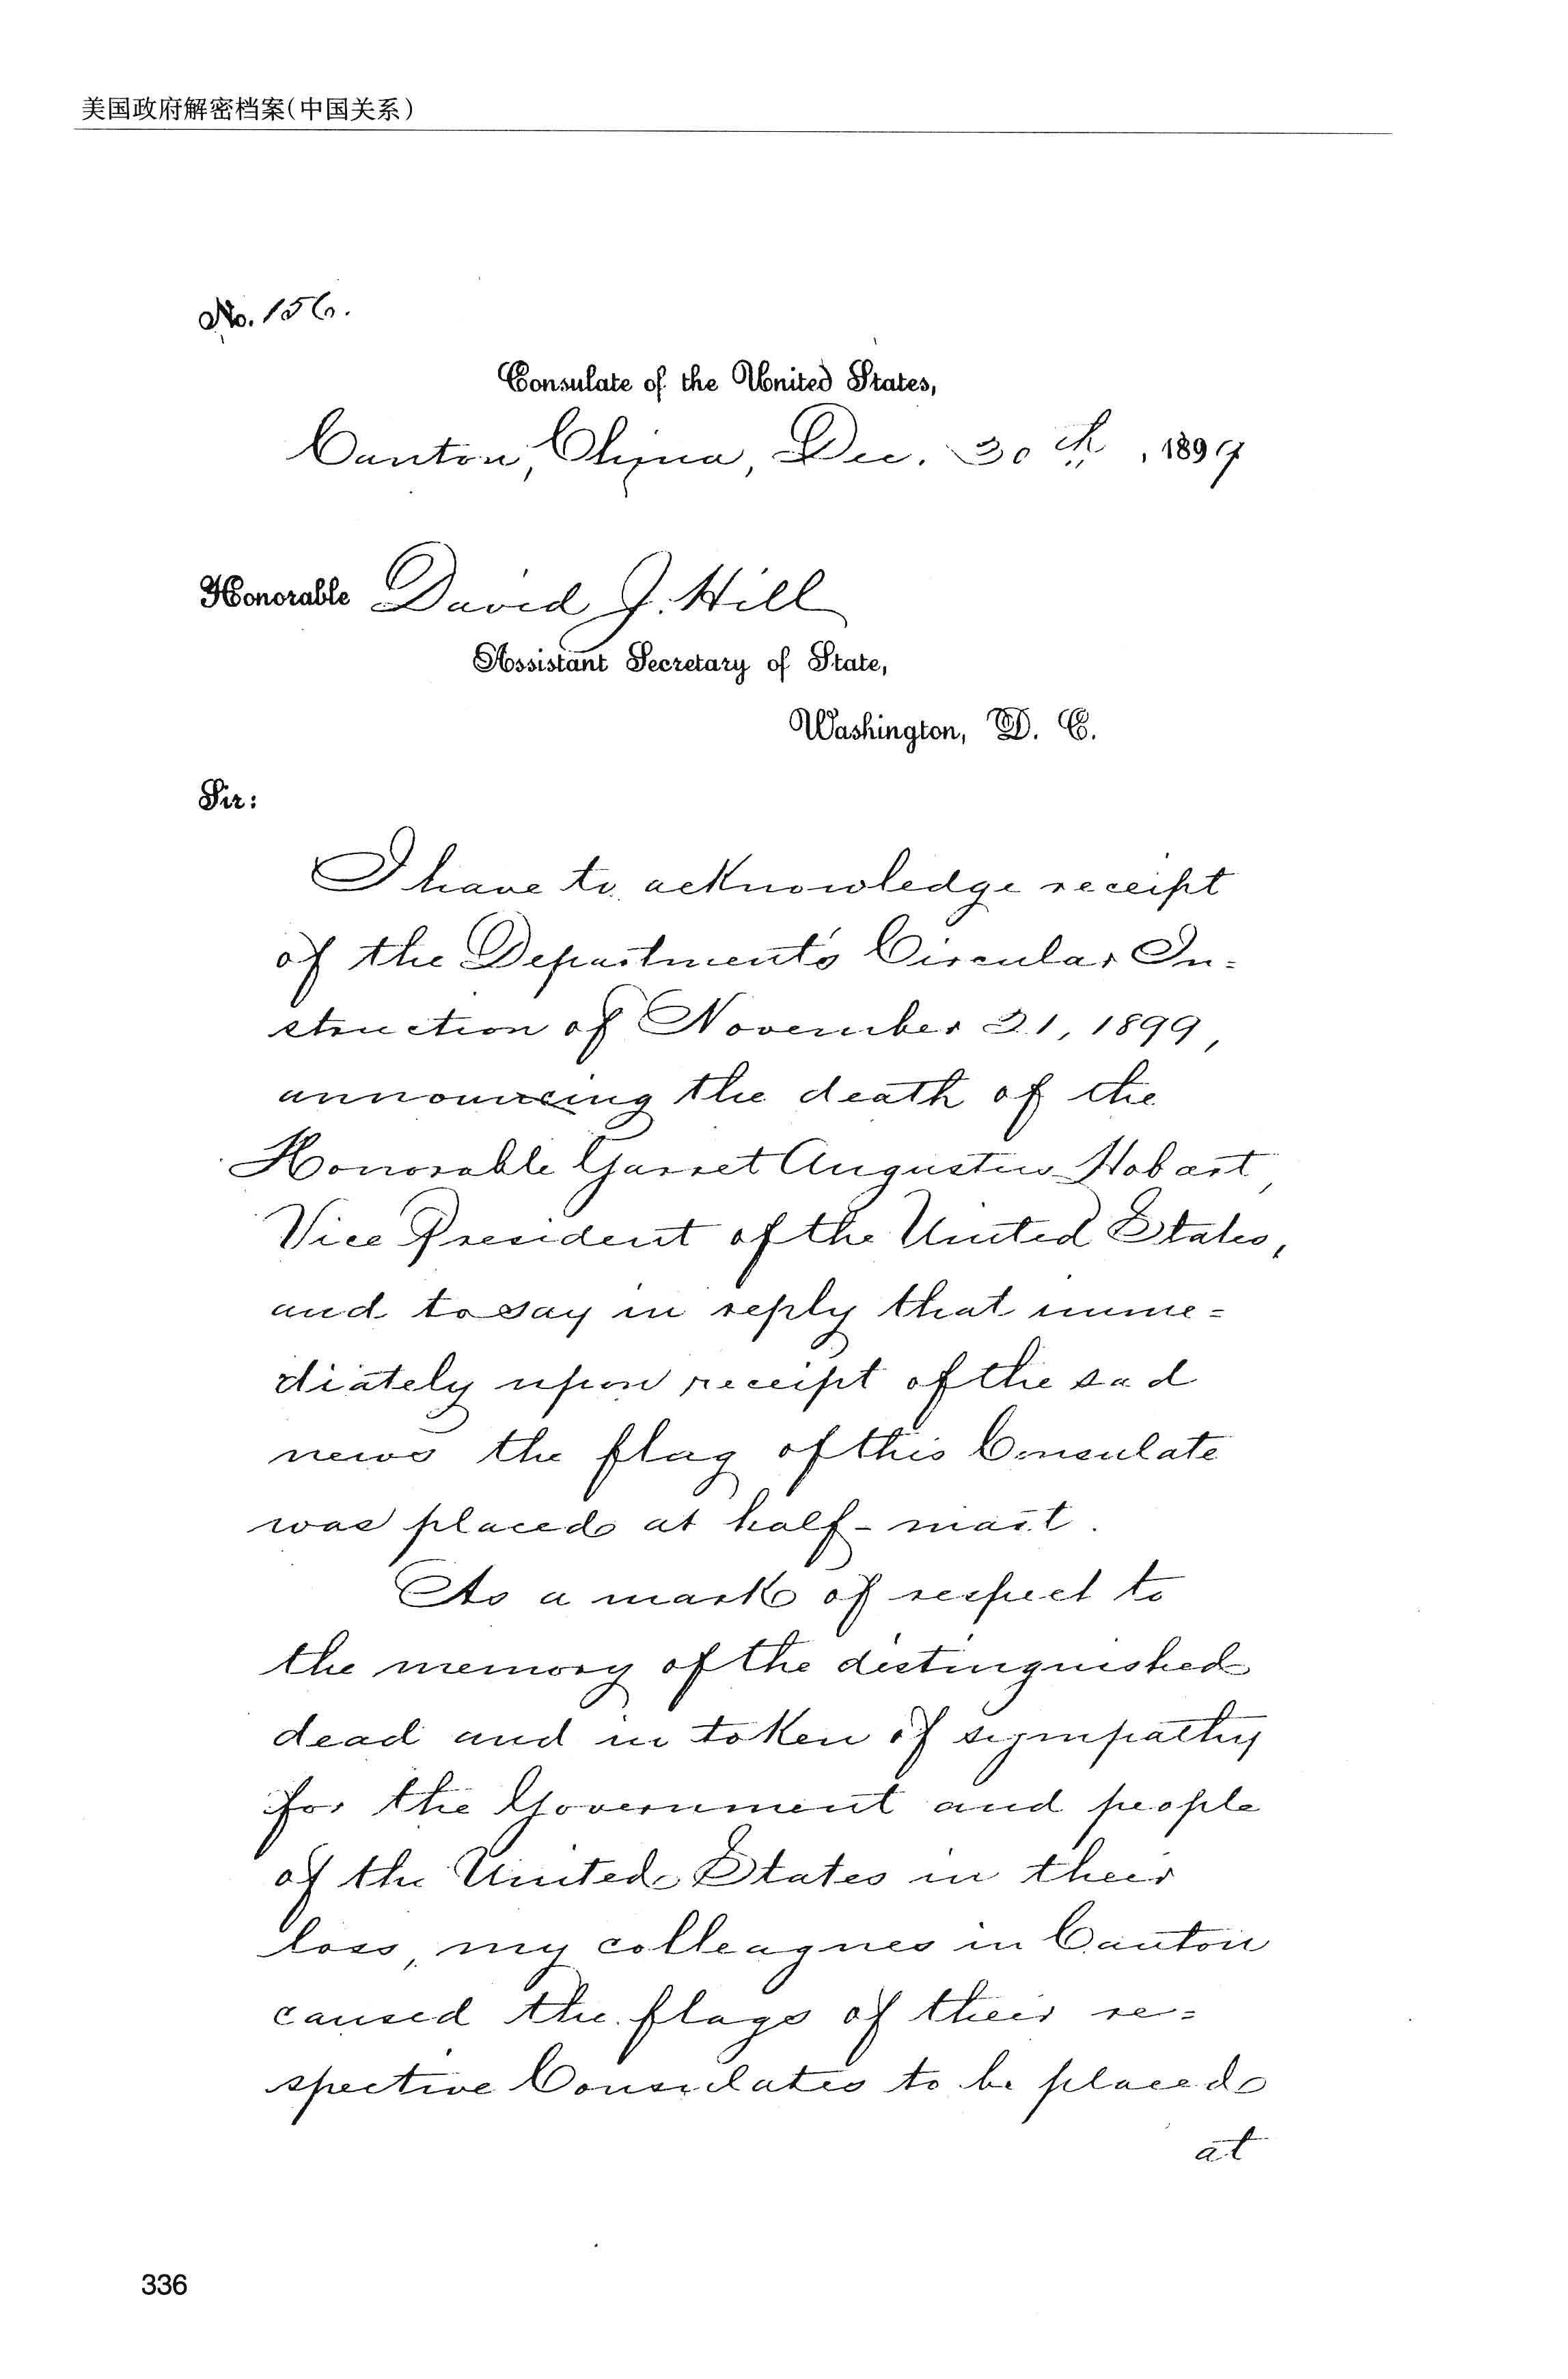 美国政府解密档案(中国关系)
No. 156.
Consulate of the United States,
Canton, China, Dec. 30th, 1899
Honorable David J. Hill
Assistant Secretary of State,
Washington, D. C.
Sir:
I have to acknowledge receipt
of the Department's Circular In-
struction of November 21, 1899,
announcing the death of the
Honorable Garret Augustus Hobart,
Vice President of the United States,
and to say in reply that imme-
diately upon receipt of the sad
news the flag of this Consulate
was placed at half-mast.
As a mark of respect to
the memory of the distinguished
dead and in token of sympathy
for the Government and people
of the United States in their
loss, my colleagues in Canton
caused the flags of their re-
spective Consulates to be placed
at
336